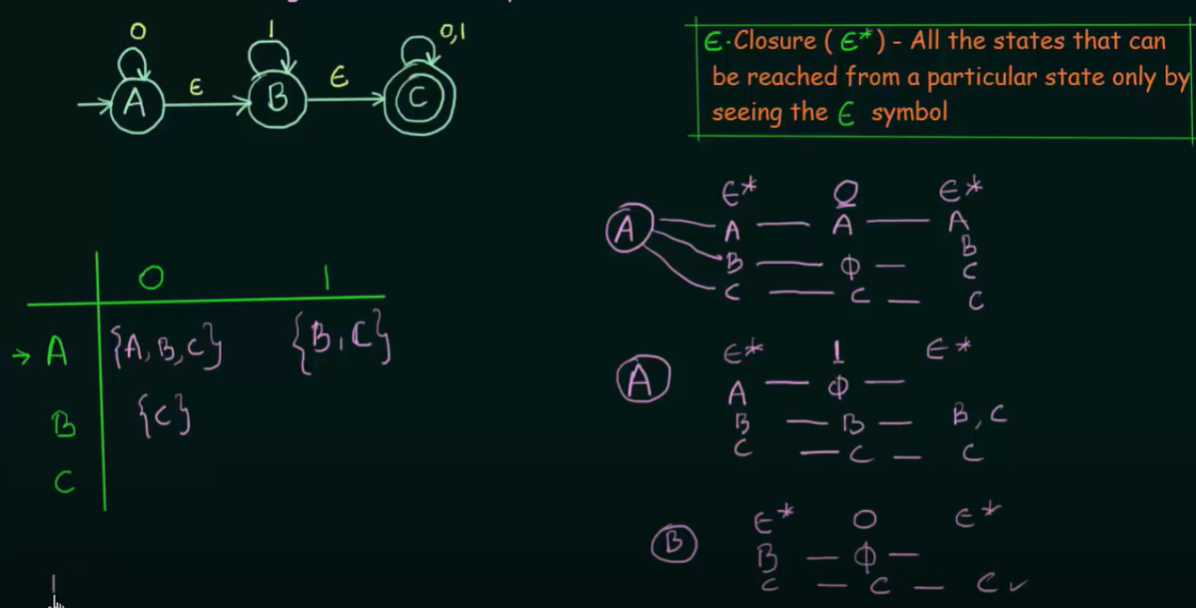 0 1 0,1
A ϵ B ϵ C
ϵ-Closure ( ϵ* ) - All the states that can
be reached from a particular state only by
seeing the ϵ symbol
ϵ* 0 ϵ*
A A — A — A
B
B — Φ —
C
C — C — C
0 1
→ A {A,B,C} {B,C}
B {C}
C
ϵ* 1 ϵ*
A A — Φ —
B — B — B, C
C — C — C
ϵ* 0 ϵ*
B B — Φ —
C — C — C ✓